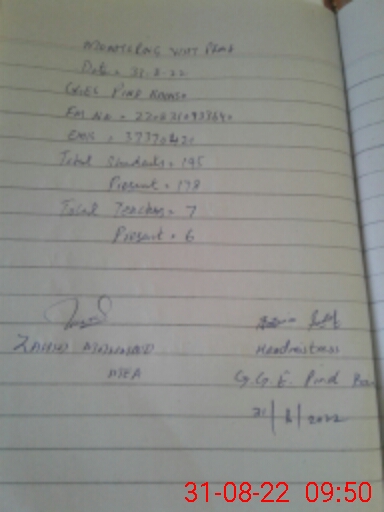 MONITORING VISIT PROF
Date = 31-8-22
GGES PIND
EMIS = 37370421
Total Students = 195
Present = 178
Total Teachers = 7
Present = 6
ZAHID MEHMOOD
MEA
Headmistress
G.G.E. Pind
31/8/2022
31-08-22 09:50